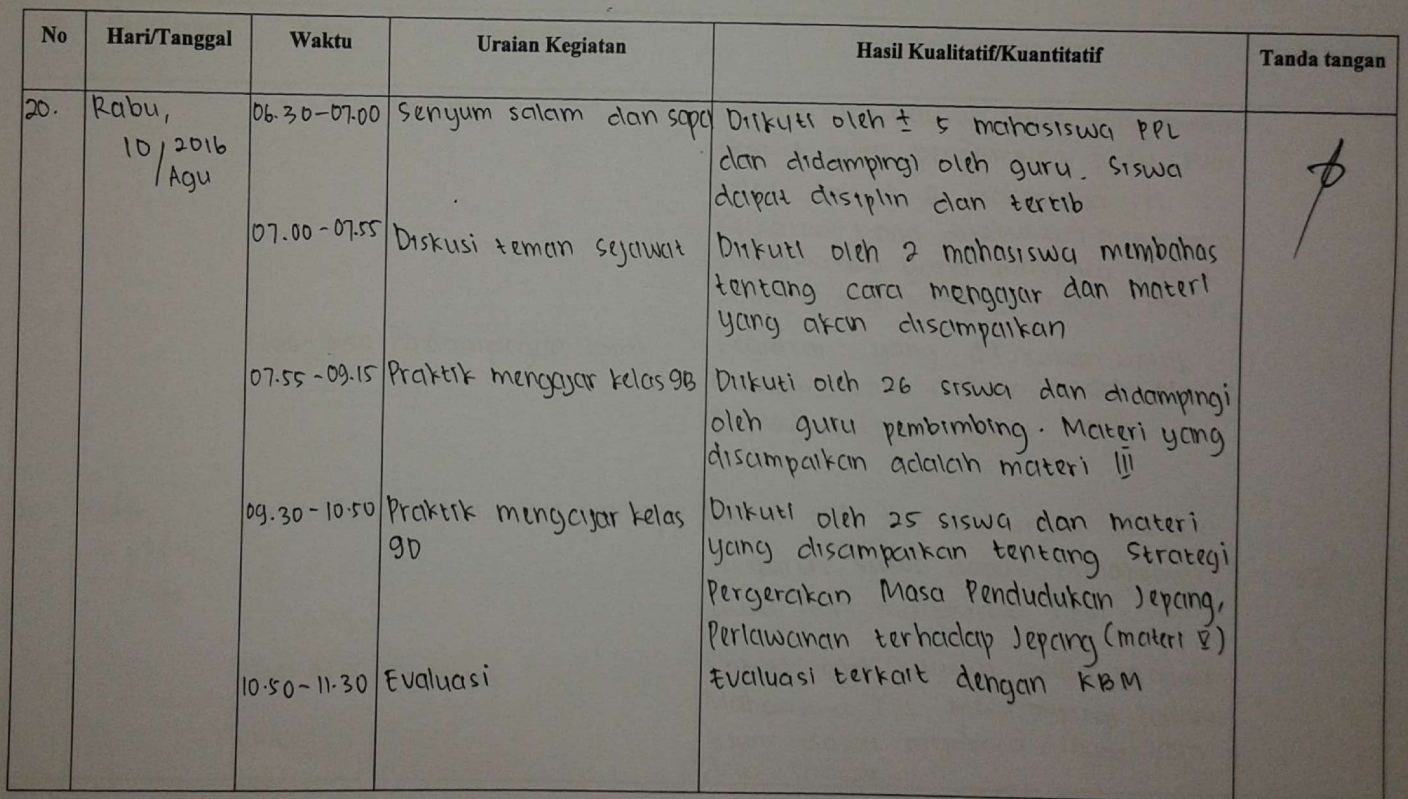 No Hari/Tanggal Waktu Uraian Kegiatan Hasil Kualitatif/Kuantitatif Tanda tangan
20. Rabu, 06.30-07.00 Senyum salam dan sapa Diikuti oleh ± 5 mahasiswa PPL
10/2016 dan didampingi oleh guru. Siswa
Agu dapat disiplin dan tertib
07.00-07.55 Diskusi teman sejawat Diikuti oleh 2 mahasiswa membahas
tentang cara mengajar dan materi
yang akan disampaikan
07.55-09.15 Praktik mengajar kelas 9B Diikuti oleh 26 siswa dan didampingi
oleh guru pembimbing. Materi yang
disampaikan adalah materi III
09.30-10.50 Praktik mengajar kelas Diikuti oleh 25 siswa dan materi
9D yang disampaikan tentang Strategi
Pergerakan Masa Pendudukan Jepang,
Perlawanan terhadap Jepang (materi V)
10.50-11.30 Evaluasi Evaluasi terkait dengan KBM